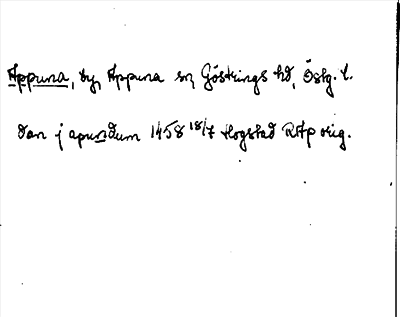 Appuna, by, Appuna sn, Göstrings hd, Östg. l.
dan j apundum 1458 18/7 Hogstad RAp orig.